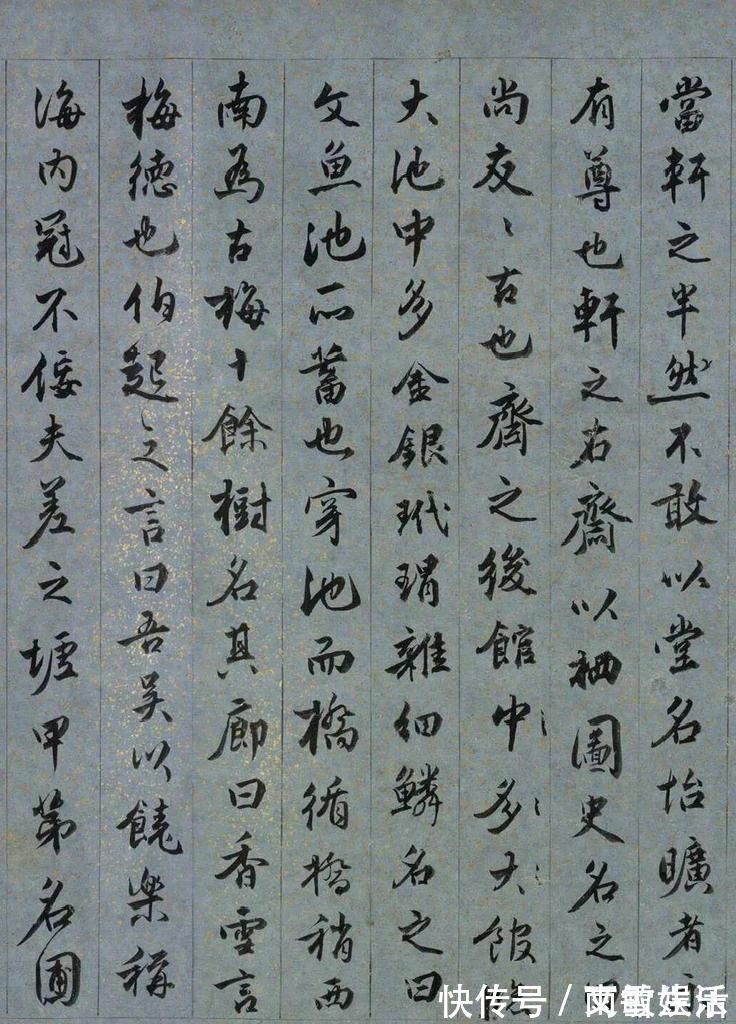 當軒之半然不敢以堂名怡曠者示
有尊也軒之右齋以栖圖史名之曰
尚友〻古也齋之後館中多大館臨
大池中多金銀玳瑁雜細鱗名之曰
文魚池所蓄也穿池而橋循橋稍西
南為古梅十餘樹名其廊曰香雪言
梅德也伯起之言曰吾吳以饒樂稱
海内冠不佞夫差之墟甲第名圃
快传号／